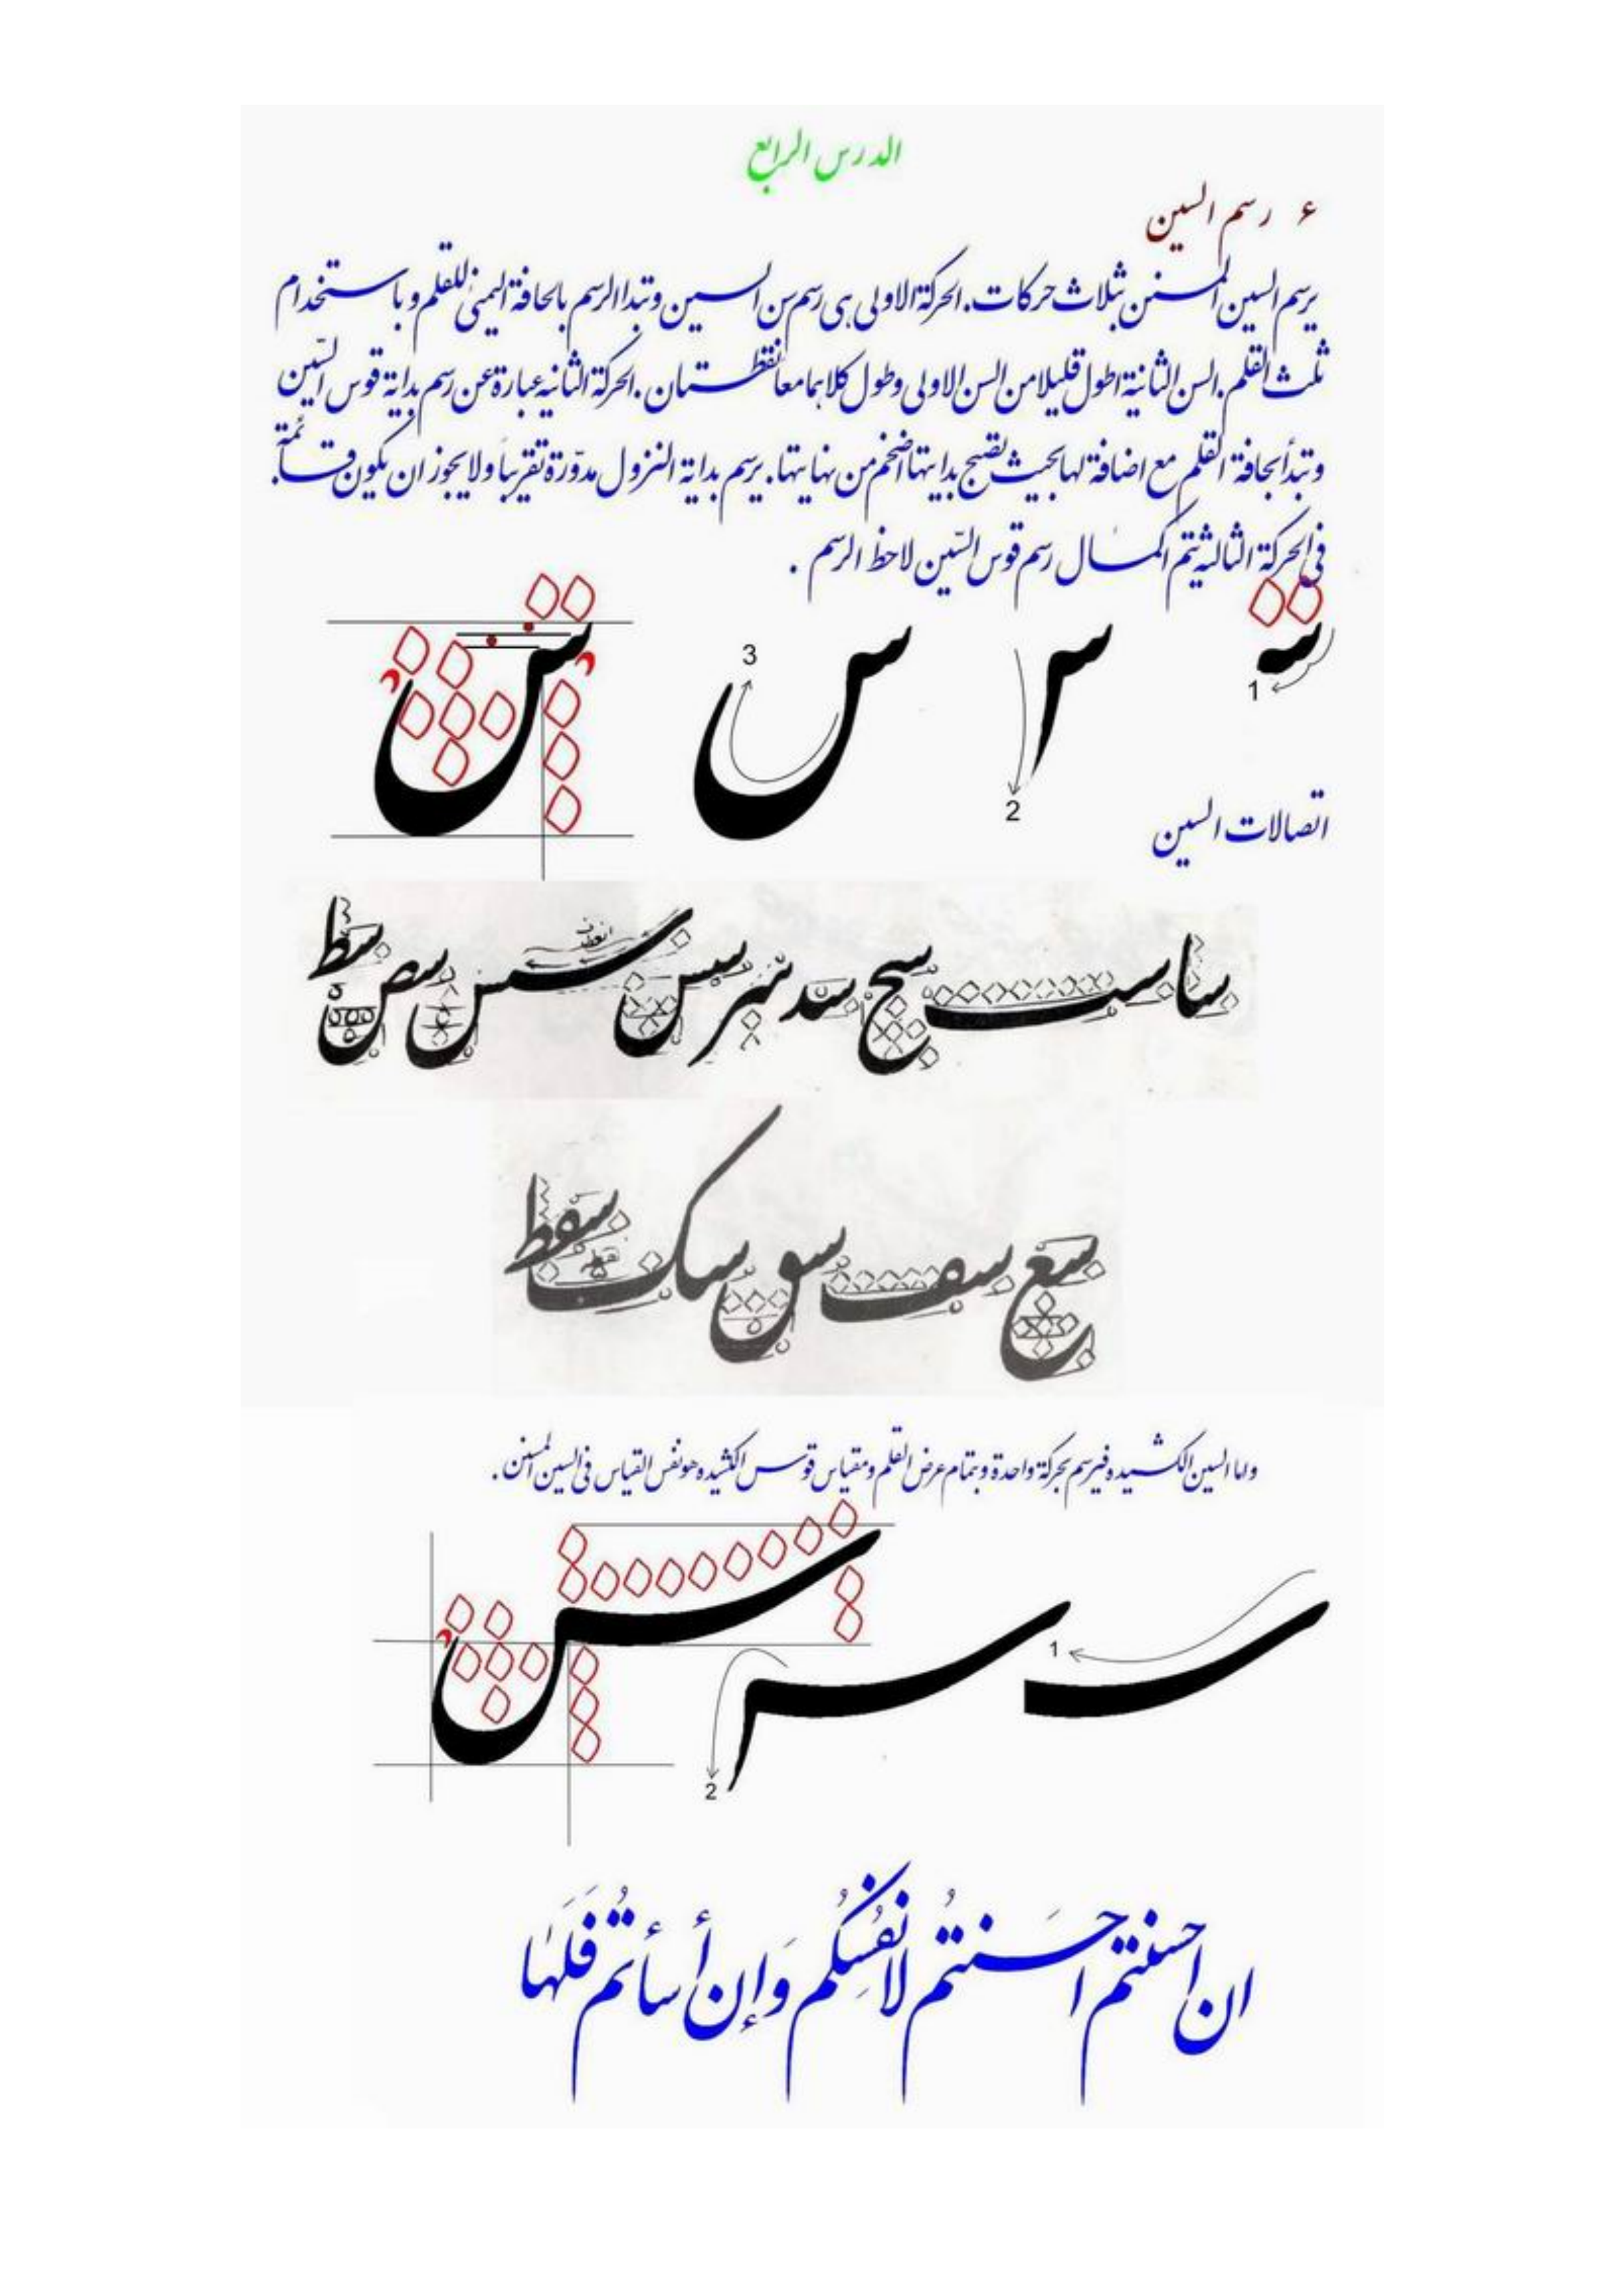 الدرس الرابع
٤ رسم السين
يرسم السين المسنن بثلاث حركات. الحركة الاولى هى رسم سن السين وتبدا الرسم بالحافة اليمنى للقلم وباستخدام
ثلث القلم. السن الثانية اطول قليلا من السن الاولى وطول كلاهما معا نقطتان. الحركة الثانيه عبارة عن رسم بداية قوس السّين
وتبدأ بحافة القلم مع اضافة لها بحيث تصبح بدايتها أضخم من نهايتها. يرسم بداية النزول مدوّرة تقريباً ولا يجوز ان يكون قائمة.
فى الحركة الثالثة يتم اكمال رسم قوس السّين لاحظ الرسم .
س س س س
3 2 1
اتصالات السين
سا ست سج سد سر سس سس سص سط
سع سف سو سك سقط
واما السين الكشيده فيرسم بحركة واحدة وبتمام عرض القلم ومقياس قوس الكشيده هو نفس القياس فى السين المسنن.
س
1
2
ان احسنتم احسَنتُم لانفُسِكُم وَإن أسأتُم فَلَهٰا